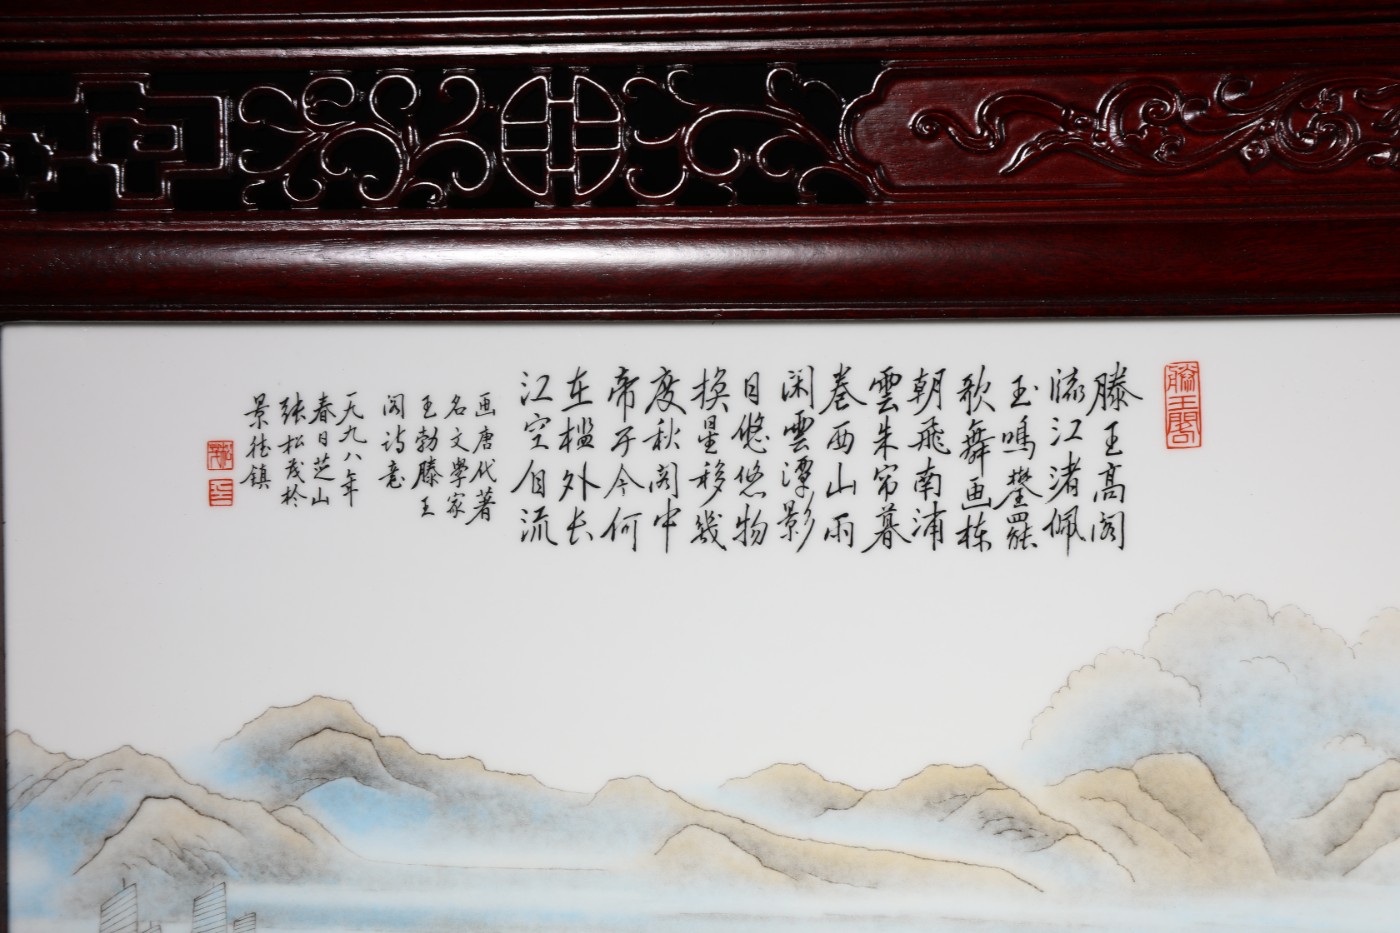 滕王阁
滕王高阁
临江渚佩
玉鸣鸾罢
歌舞画栋
朝飛南浦
雲朱帘暮
卷西山雨
闲雲潭影
日悠悠物
换星移幾
度秋阁中
帝子今何
在檻外长
江空自流
画唐代著
名文學家
王勃滕王
阁诗意
一九九八年
春日芝山
张松茂於
景德镇